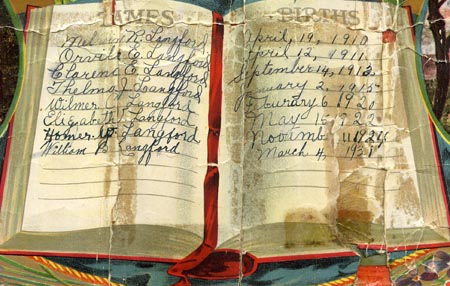 NAMES BIRTHS
Melvin R. Langford April, 19, 1910
Orville E. Langford April 12, 1911
Clarens E. Langford September 14, 1913
Thelma J. Langford January 2, 1915
Wilmer C. Langford February 6 1920
Elizabeth Langford May 15 1922
Homer W. Langford Novemb
William B Langford March 4, 193